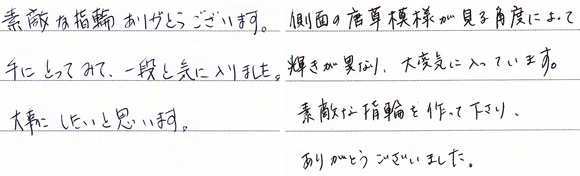 素敵な指輪ありがとうございます。
手にとってみて、一段と気に入りました。
大事にしたいと思います。
側面の唐草模様が見る角度によって
輝きが異なり、大変気に入っています。
素敵な指輪を作って下さり、
ありがとうございました。